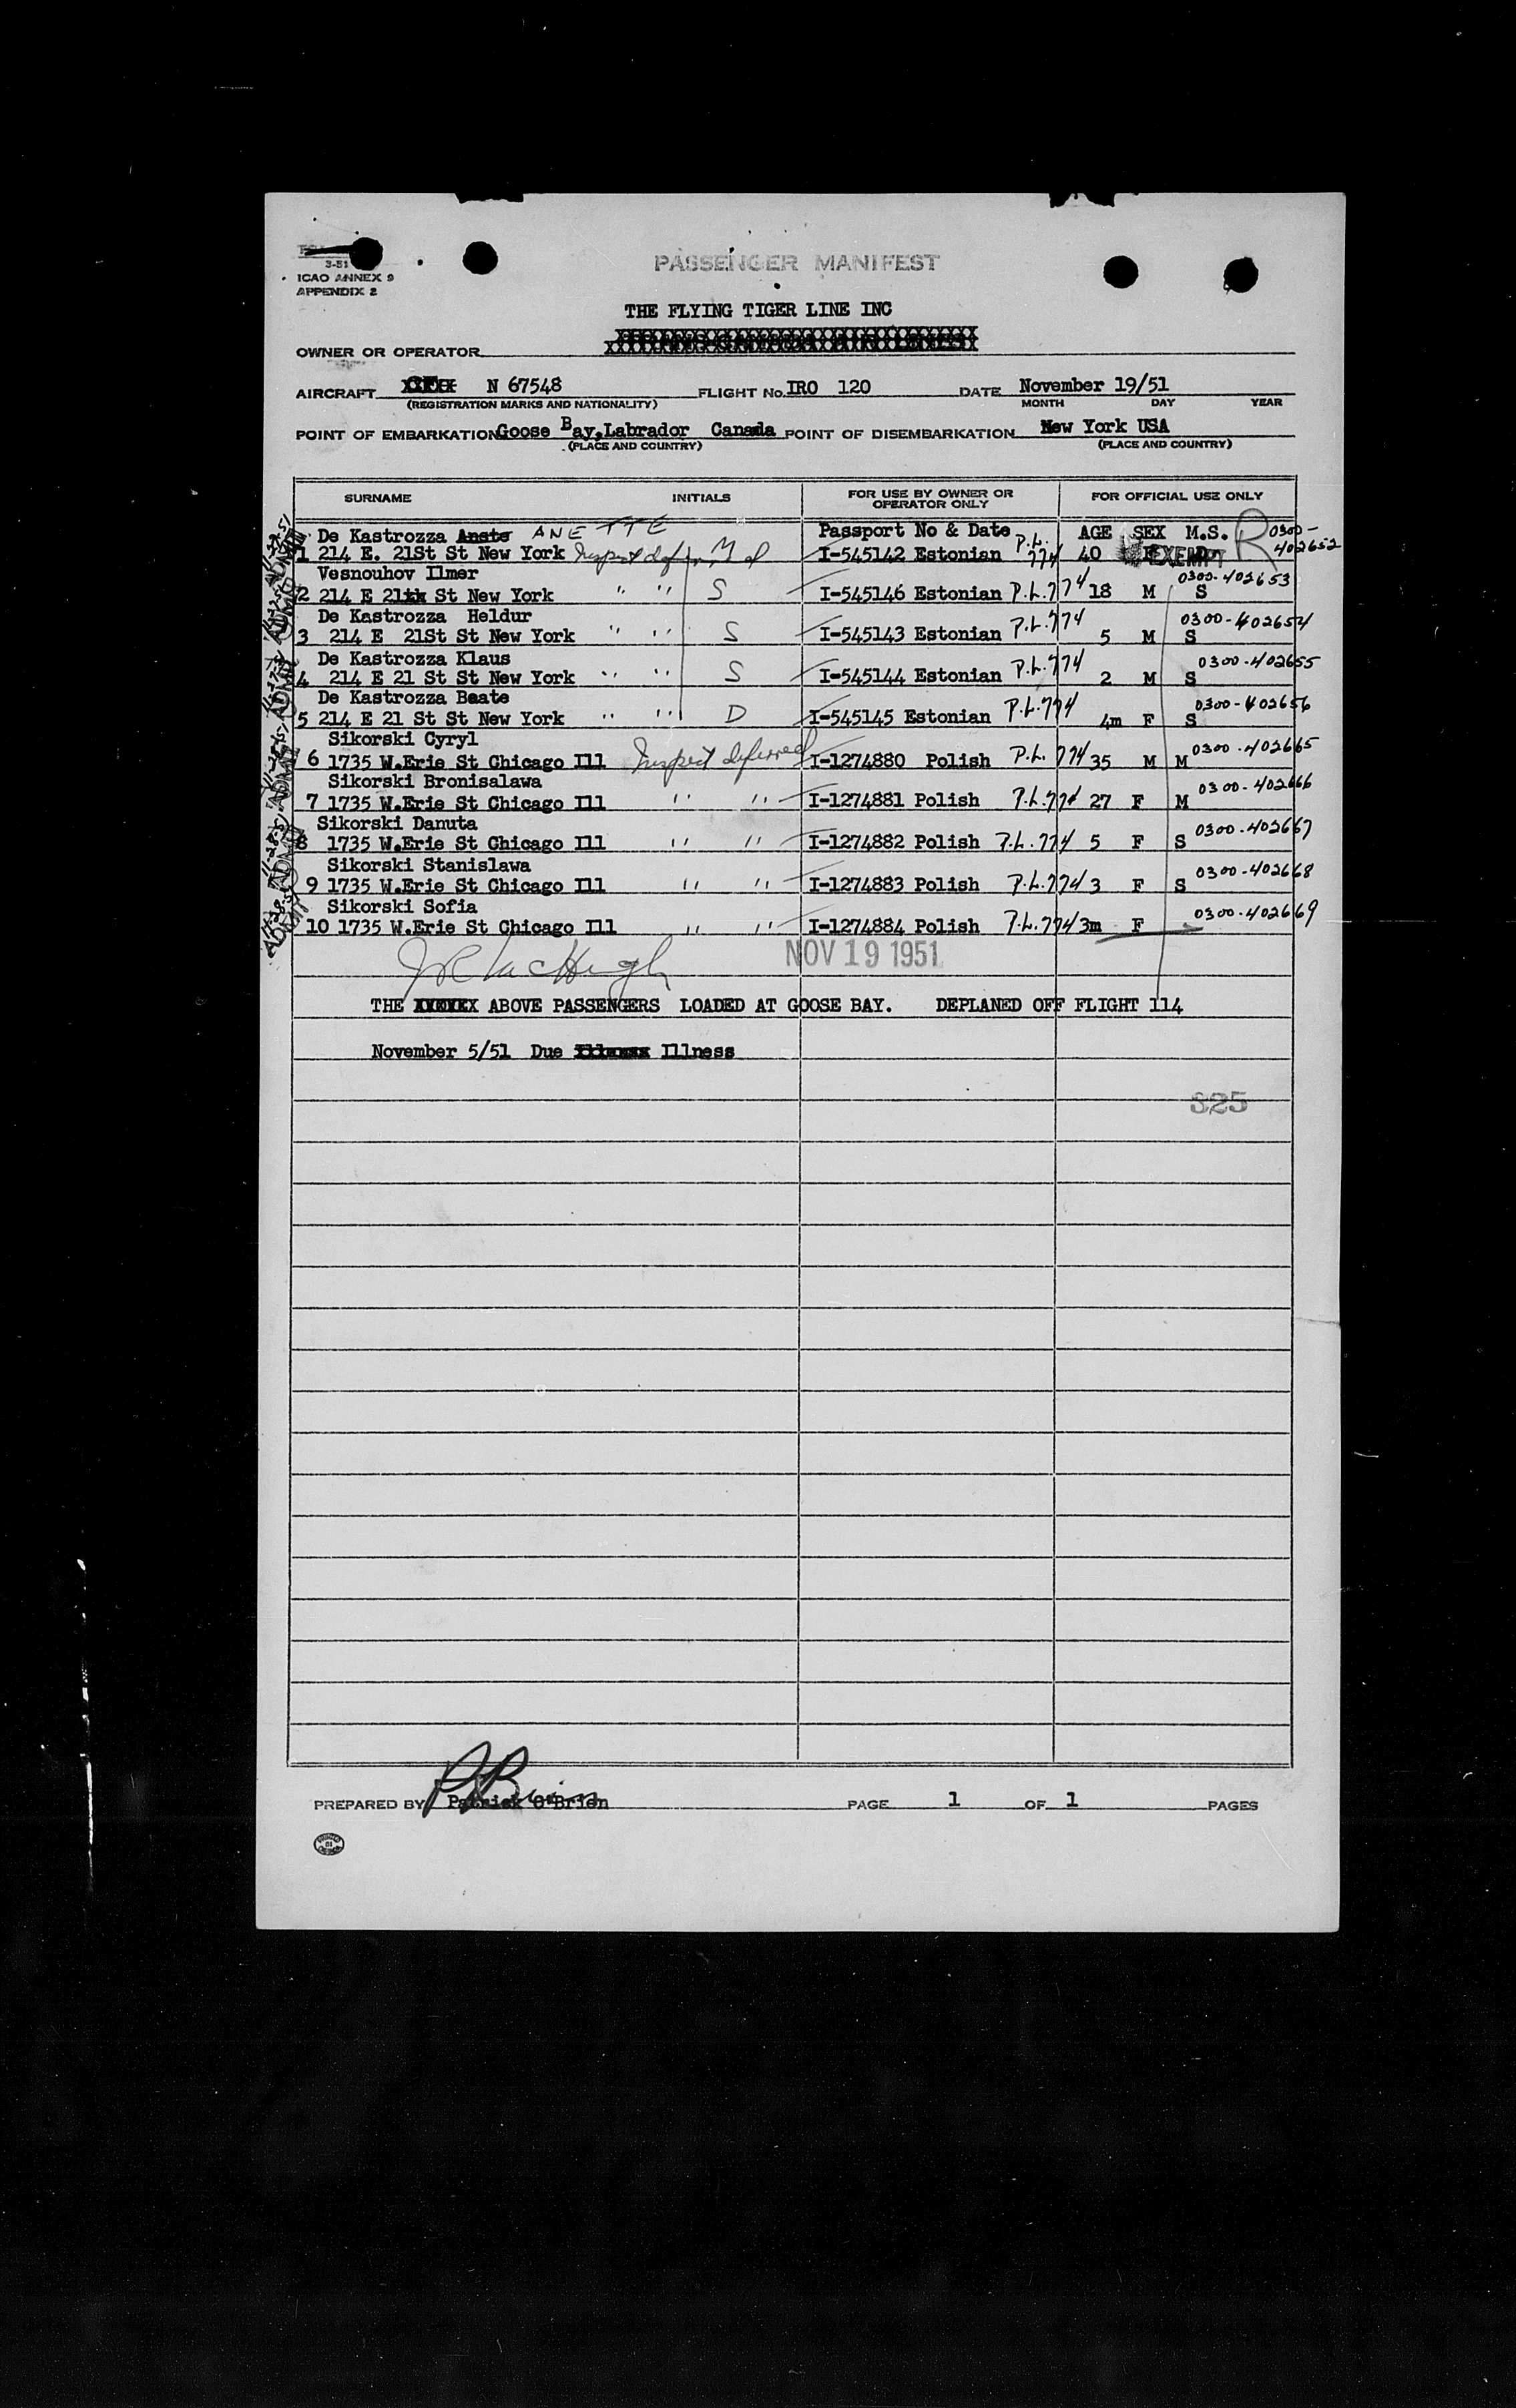 3-51
ICAO ANNEX 9
APPENDIX 2
PASSENGER MANIFEST
THE FLYING TIGER LINE INC
OWNER OR OPERATOR
AIRCRAFT N 67548 FLIGHT No. IRO 120 DATE November 19/51
(REGISTRATION MARKS AND NATIONALITY) MONTH DAY YEAR
POINT OF EMBARKATION Goose Bay, Labrador Canada POINT OF DISEMBARKATION New York USA
(PLACE AND COUNTRY) (PLACE AND COUNTRY)
SURNAME INITIALS FOR USE BY OWNER OR OPERATOR ONLY FOR OFFICIAL USE ONLY
De Kastrozza Anete ANETTE Passport No & Date P.L. AGE SEX M.S. R 0300-
1 214 E. 21St St New York Inspect def. I-545142 Estonian 774 40 F EXEMPT D 402652
Vesnouhov Ilmer 0300-402653
2 214 E 21 St New York " " S I-545146 Estonian P.L.774 18 M S
De Kastrozza Heldur 0300-402654
3 214 E 21St St New York " " S I-545143 Estonian P.L.774 5 M S
De Kastrozza Klaus 0300-402655
4 214 E 21 St St New York " " S I-545144 Estonian P.L.774 2 M S
De Kastrozza Beate 0300-402656
5 214 E 21 St St New York " " D I-545145 Estonian P.L.774 4m F S
Sikorski Cyryl 0300-402665
6 1735 W.Erie St Chicago Ill Inspect deferred I-1274880 Polish P.L.774 35 M M
Sikorski Bronisalawa 0300-402666
7 1735 W.Erie St Chicago Ill " " I-1274881 Polish P.L.774 27 F M
Sikorski Danuta 0300-402667
8 1735 W.Erie St Chicago Ill " " I-1274882 Polish P.L.774 5 F S
Sikorski Stanislawa 0300-402668
9 1735 W.Erie St Chicago Ill " " I-1274883 Polish P.L.774 3 F S
Sikorski Sofia 0300-402669
10 1735 W.Erie St Chicago Ill " " I-1274884 Polish P.L.774 3m F
NOV 19 1951
THE ABOVE PASSENGERS LOADED AT GOOSE BAY. DEPLANED OFF FLIGHT 114
November 5/51 Due Illness
325
PREPARED BY Patrick O'Brien PAGE 1 OF 1 PAGES